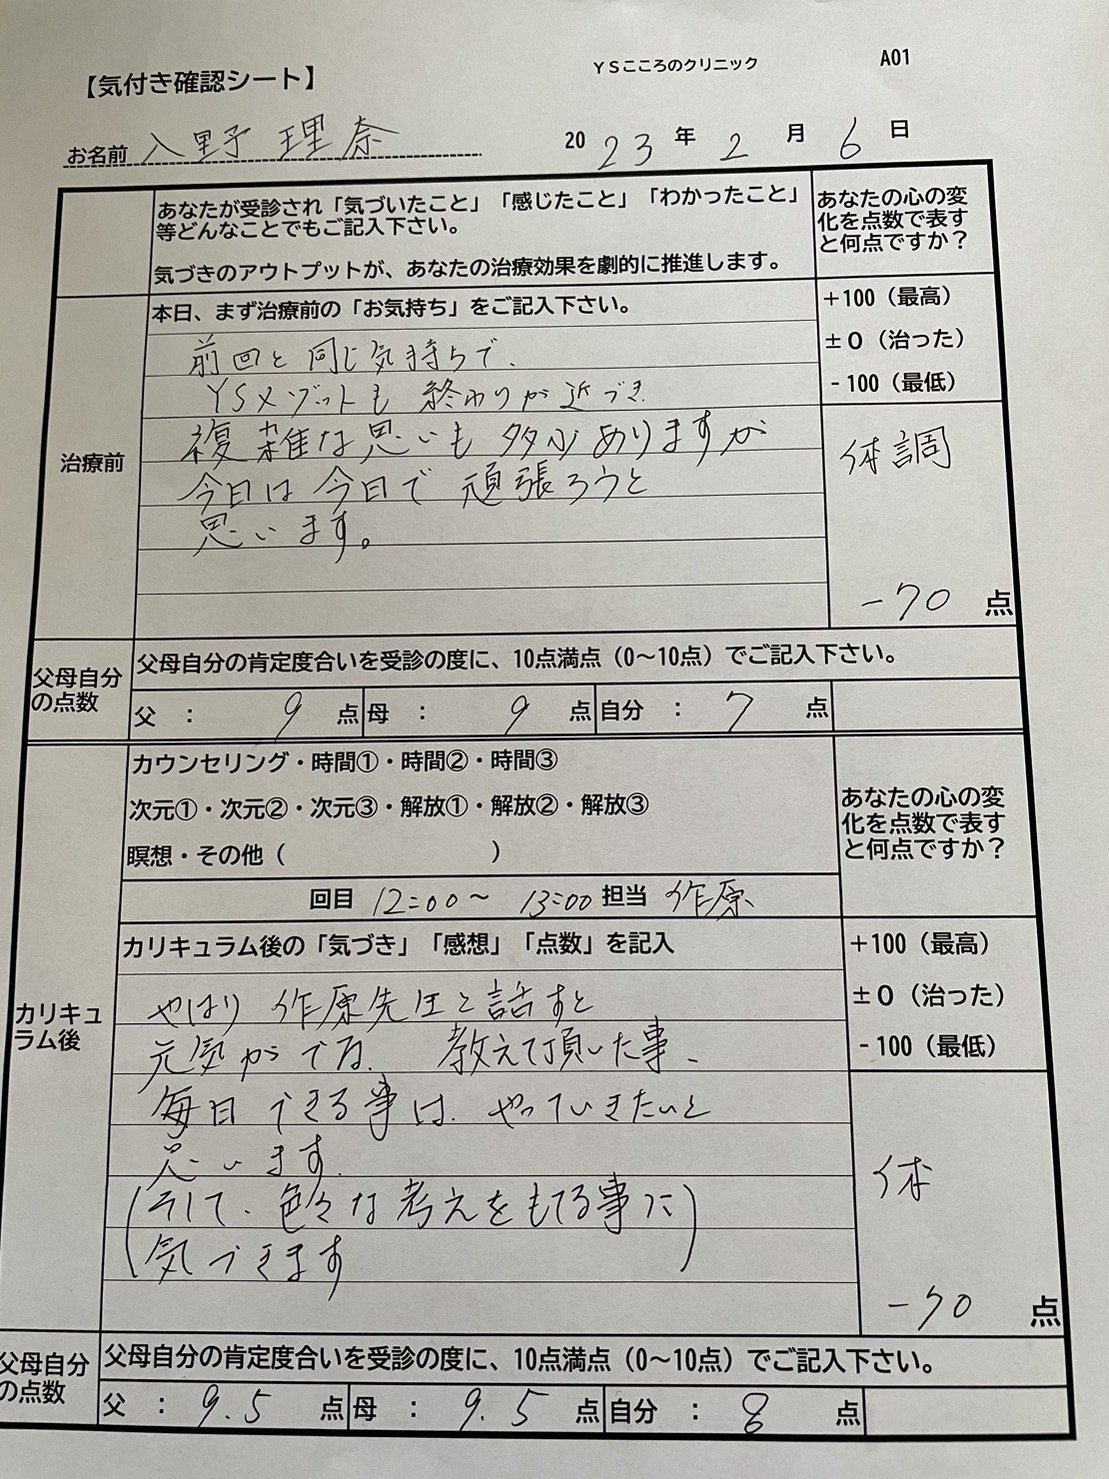 【気付き確認シート】
YSこころのクリニック
A01
お名前 入野 理奈
2023年2月6日
あなたが受診され「気づいたこと」「感じたこと」「わかったこと」
等どんなことでもご記入下さい。
気づきのアウトプットが、あなたの治療効果を劇的に推進します。
あなたの心の変
化を点数で表す
と何点ですか？
治療前
本日、まず治療前の「お気持ち」をご記入下さい。
前回と同じ気持ちで、
YSメゾットも 終わりが近づき
複雑な思いも 多少ありますが
今日は 今日で 頑張ろうと
思います。
+100（最高）
±0（治った）
-100（最低）
体調
-70 点
父母自分
の点数
父母自分の肯定度合いを受診の度に、10点満点（0～10点）でご記入下さい。
父 ： 9 点 母 ： 9 点 自分 ： 7 点
カリキュ
ラム後
カウンセリング・時間①・時間②・時間③
次元①・次元②・次元③・解放①・解放②・解放③
瞑想・その他（ ）
回目 12:00～ 13:00 担当 作原
あなたの心の変
化を点数で表す
と何点ですか？
カリキュラム後の「気づき」「感想」「点数」を記入
やはり 作原先生と話すと
元気がでる、 教えて頂いた事、
毎日 できる事は、やっていきたいと
思います、
(そして、色々な考えをもてる事に)
(気づきます
+100（最高）
±0（治った）
-100（最低）
体
-70 点
父母自分
の点数
父母自分の肯定度合いを受診の度に、10点満点（0～10点）でご記入下さい。
父 ： 9.5 点 母 ： 9.5 点 自分 ： 8 点